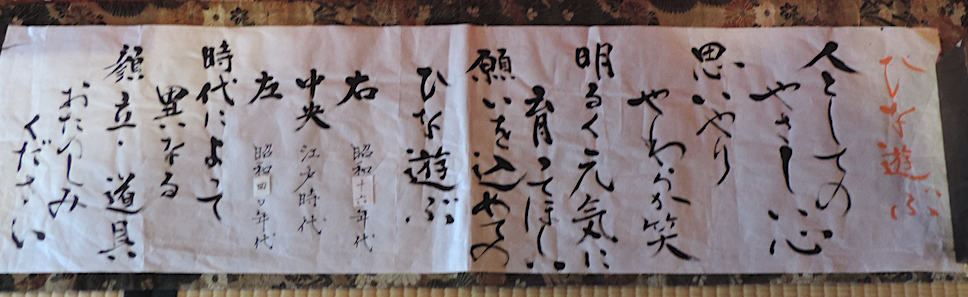 ひな遊ぶ
人としての
やさしい心
思いやり
やわらか笑
明るく元気に
育ってほしい
願いを込めての
ひな遊ぶ
右 昭和十六年代
中央 江戸時代
左 昭和四〇年代
時代によって
異なる
顔立・道具
おたのしみ
ください